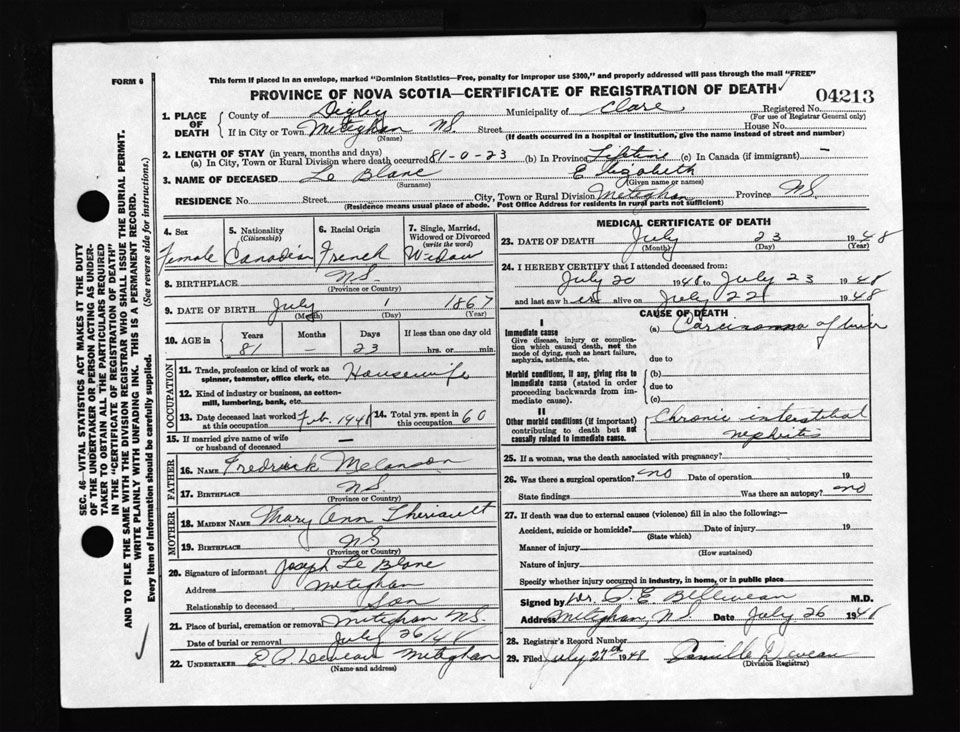 FORM 6
This form if placed in an envelope, marked "Dominion Statistics—Free, penalty for improper use $300," and properly addressed will pass through the mail "FREE"
PROVINCE OF NOVA SCOTIA—CERTIFICATE OF REGISTRATION OF DEATH
04213
1. PLACE OF DEATH
County of Digby Municipality of Clare Registered No.
(For use of Registrar General only)
If in City or Town Meteghan NS. Street House No.
(Name) (If death occurred in a hospital or institution, give the name instead of street and number)
2. LENGTH OF STAY (in years, months and days)
(a) In City, Town or Rural Division where death occurred 81-0-23 (b) In Province Lifetime (c) In Canada (if immigrant) —
3. NAME OF DECEASED Le Blanc Elizabeth
(Surname) (Given name or names)
RESIDENCE No. Street City, Town or Rural Division Meteghan Province NS.
(Residence means usual place of abode. Post Office Address for residents in rural parts not sufficient)
4. Sex
Female
5. Nationality
(Citizenship)
Canadian
6. Racial Origin
French
7. Single, Married, Widowed or Divorced
(write the word)
Widow
8. BIRTHPLACE NS
(Province or Country)
9. DATE OF BIRTH July 1 1867
(Month) (Day) (Year)
10. AGE in Years Months Days If less than one day old
81 23 hrs. or min.
OCCUPATION
11. Trade, profession or kind of work as spinner, teamster, office clerk, etc. Housewife
12. Kind of industry or business, as cotton-mill, lumbering, bank, etc.
13. Date deceased last worked at this occupation Feb. 1948
14. Total yrs. spent in this occupation 60
15. If married give name of wife or husband of deceased —
FATHER
16. NAME Fredrick Melanson
17. BIRTHPLACE NS.
(Province or Country)
MOTHER
18. MAIDEN NAME Mary Ann Theriault
19. BIRTHPLACE NS
(Province or Country)
20. Signature of informant Joseph Le Blanc
Address Meteghan
Relationship to deceased Son
21. Place of burial, cremation or removal Meteghan NS.
Date of burial or removal July 26/48
22. UNDERTAKER Deveau Meteghan
(Name and address)
MEDICAL CERTIFICATE OF DEATH
23. DATE OF DEATH July 23 1948
(Month) (Day) (Year)
24. I HEREBY CERTIFY that I attended deceased from:
July 20 1948 to July 23 1948
and last saw her alive on July 22 1948
CAUSE OF DEATH
I
Immediate cause
Give disease, injury or complication which caused death, not the mode of dying, such as heart failure, asphyxia, asthenia, etc.
(a) Carcinoma of liver
due to
Morbid conditions, if any, giving rise to immediate cause (stated in order proceeding backwards from immediate cause)
(b)
due to
(c)
II
Other morbid conditions (if important) contributing to death but not causally related to immediate cause.
Chronic interstitial
nephritis
25. If a woman, was the death associated with pregnancy?
26. Was there a surgical operation? no Date of operation 19
State findings Was there an autopsy? no
27. If death was due to external causes (violence) fill in also the following:—
Accident, suicide or homicide? Date of injury 19
(State which)
Manner of injury
(How sustained)
Nature of injury
Specify whether injury occurred in industry, in home, or in public place
Signed by Dr. E Belliveau M.D.
Address Meteghan, NS Date July 26 1948
28. Registrar's Record Number
29. Filed July 27th 1948 Camille Deveau
(Division Registrar)
SEC. 46—VITAL STATISTICS ACT MAKES IT THE DUTY
OF THE UNDERTAKER OR PERSON ACTING AS UNDER-
TAKER TO OBTAIN ALL THE PARTICULARS REQUIRED
IN THE "CERTIFICATE OF REGISTRATION OF DEATH"
AND TO FILE THE SAME WITH THE DIVISION REGISTRAR WHO SHALL ISSUE THE BURIAL PERMIT.
WRITE PLAINLY WITH UNFADING INK. THIS IS A PERMANENT RECORD.
Every item of Information should be carefully supplied. (See reverse side for instructions.)